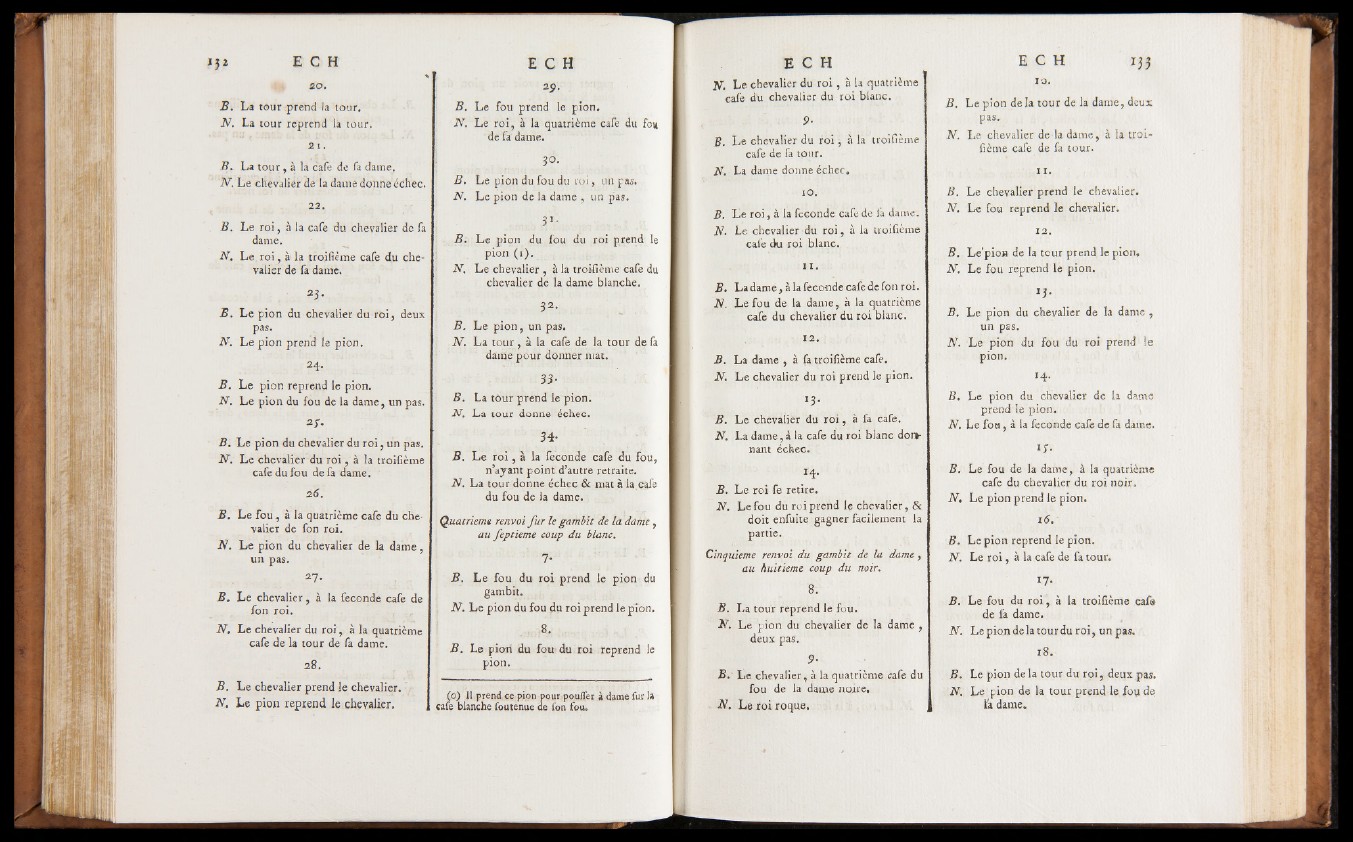 132 E C H
20.
B. La tour prend la tour.
N. La tour reprend la tour.
21.
B. La tour, à la cafe de fa dame.
N. Le chevalier de la dame donne échec.
22.
B. Le roi, à la cafe du chevalier de fa
dame.
N. Le roi, à la troifième cafe du che-
valier de fa dame.
23.
B. Le pion du chevalier du roi, deux
pas.
N. Le pion prend le pion.
24.
B. Le pion reprend le pion.
N. Le pion du fou de la dame, un pas.
25.
B. Le pion du chevalier du roi, un pas.
N. Le chevalier du roi, à la troifième
cafe du fou de fa dame.
26.
B. Le fou, à la quatrième cafe du che-
valier de fon roi.
N. Le pion du chevalier de la dame,
un pas.
27.
B. Le chevalier, à la feconde cafe de
fon roi.
N. Le chevalier du roi, à la quatrième
cafe de la tour de fa dame.
28.
B. Le chevalier prend le chevalier.
N. Le pion reprend le chevalier.
E C H
29.
B. Le fou prend le pion.
N. Le roi, à la quatrième cafe du fou
de fa dame.
30.
B. Le pion du fou du roi, un pas.
N. Le pion de la dame, un pas.
31.
B. Le pion du fou du roi prend le
pion (1).
N. Le chevalier, à la troifième cafe du
chevalier de la dame blanche.
32.
B. Le pion, un pas.
N. La tour, à la cafe de la tour de fa
dame pour donner mat.
33.
B. La tour prend le pion.
N. La tour donne échec.
34.
B. Le roi, à la feconde cafe du fou,
n'ayant point d'autre retraite.
N. La tour donne échec & mat à la cafe
du fou de la dame.
Quatrieme renvoi fur le gambit de la dame,
au feptieme coup du blanc.
7.
B. Le fou du roi prend le pion du
gambit.
N. Le pion du fou du roi prend le pion.
8.
B. Le pion du fou du roi reprend le
pion.
(0) Il prend ce pion pour pouffer à dame fur la
cafe blanche foutenue de fon fou.
E C H
N. Le chevalier du roi, à la quatrième
cafe du chevalier du roi blanc.
9.
B. Le chevalier du roi, à la troifième
cafe de fa tour.
N. La dame donne échec.
10.
B. Le roi, à la feconde cafe de fa dame.
N. Le chevalier du roi, à la troifième
cafe du roi blanc.
11.
B. La dame, à la feconde cafe de fon roi.
N. Le fou de la dame, à la quatrième
cafe du chevalier du roi blanc.
12.
B. La dame, à fa troifième cafe.
N. Le chevalier du roi prend le pion.
13.
B. Le chevalier du roi, à fa cafe.
N. La dame, à la cafe du roi blanc don-
nant échec.
14.
B. Le roi fe retire.
N. Le fou du roi prend le chevalier, &
doit enfuite gagner facilement la
partie.
Cinquieme renvoi du gambit de la dame,
au huitieme coup du noir.
8.
B. La tour reprend le fou.
N. Le pion du chevalier de la dame,
deux pas.
9.
B. Le chevalier, à la quatrième cafe du
fou de la dame noire.
N. Le roi roque.
E C H 133
10.
B. Le pion de la tour de la dame, deux
pas.
N. Le chevalier de la dame, à la troi-
fième cafe de fa tour.
11.
B. Le chevalier prend le chevalier.
N. Le fou reprend le chevalier.
12.
B. Le pion de la tour prend le pion.
N. Le fou reprend le pion.
13.
B. Le pion du chevalier de la dame,
un pas.
N. Le pion du fou du roi prend le
pion.
14.
B. Le pion du chevalier de la dame
prend le pion.
N. Le fou, à la feconde cafe de fa dame.
15.
B. Le fou de la dame, à la quatrième
cafe du chevalier du roi noir.
N. Le pion prend le pion.
16.
B. Le pion reprend le pion.
N. Le roi, à la cafe de fa tour.
17.
B. Le fou du roi, à la troifième cafe
de fa dame.
N. Le pion de la tour du roi, un pas.
18.
B. Le pion de la tour du roi, deux pas.
N. Le pion de la tour prend le fou de
la dame.